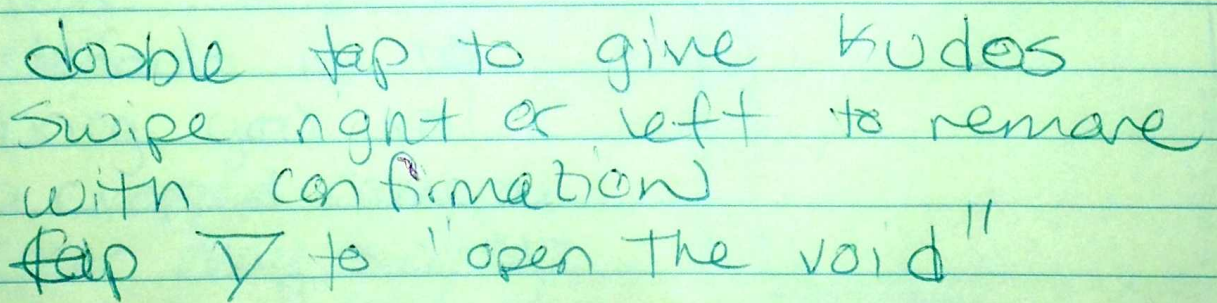 double tap to give kudos
swipe right or left to remove
with confirmation
tap ▽ to "open the void"